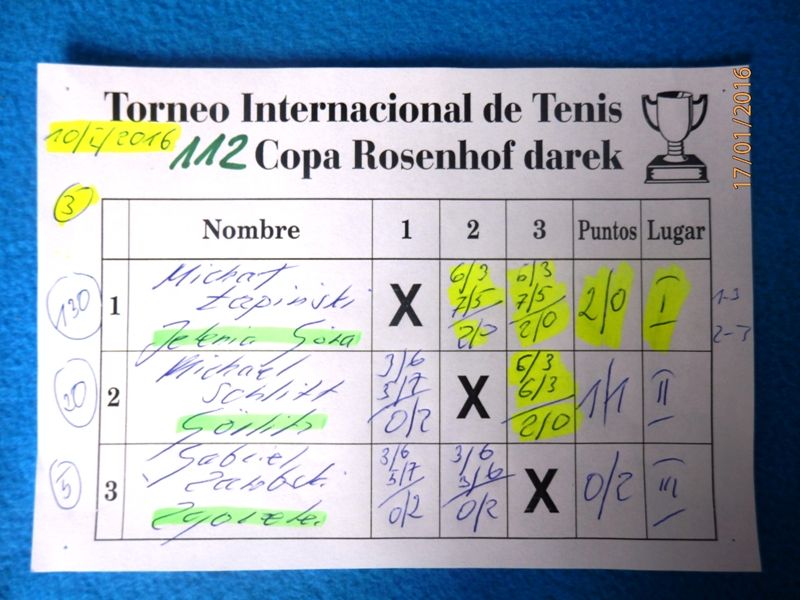 Torneo Internacional de Tenis
10/I/2016 112 Copa Rosenhof darek
17/01/2016
3
Nombre 1 2 3 Puntos Lugar
130 1 Michał Łapiński X 6/3 6/3 2/0 I 1-3
7/5 7/5 2-3
Jelenia Góra 2/0 2/0
30 2 Michael Schlitt 3/6 X 6/3 1/1 II
5/7 6/3
Görlitz 0/2 2/0
5 3 Gabriel 3/6 3/6 X 0/2 III
5/7 3/6
Zgorzelec 0/2 0/2